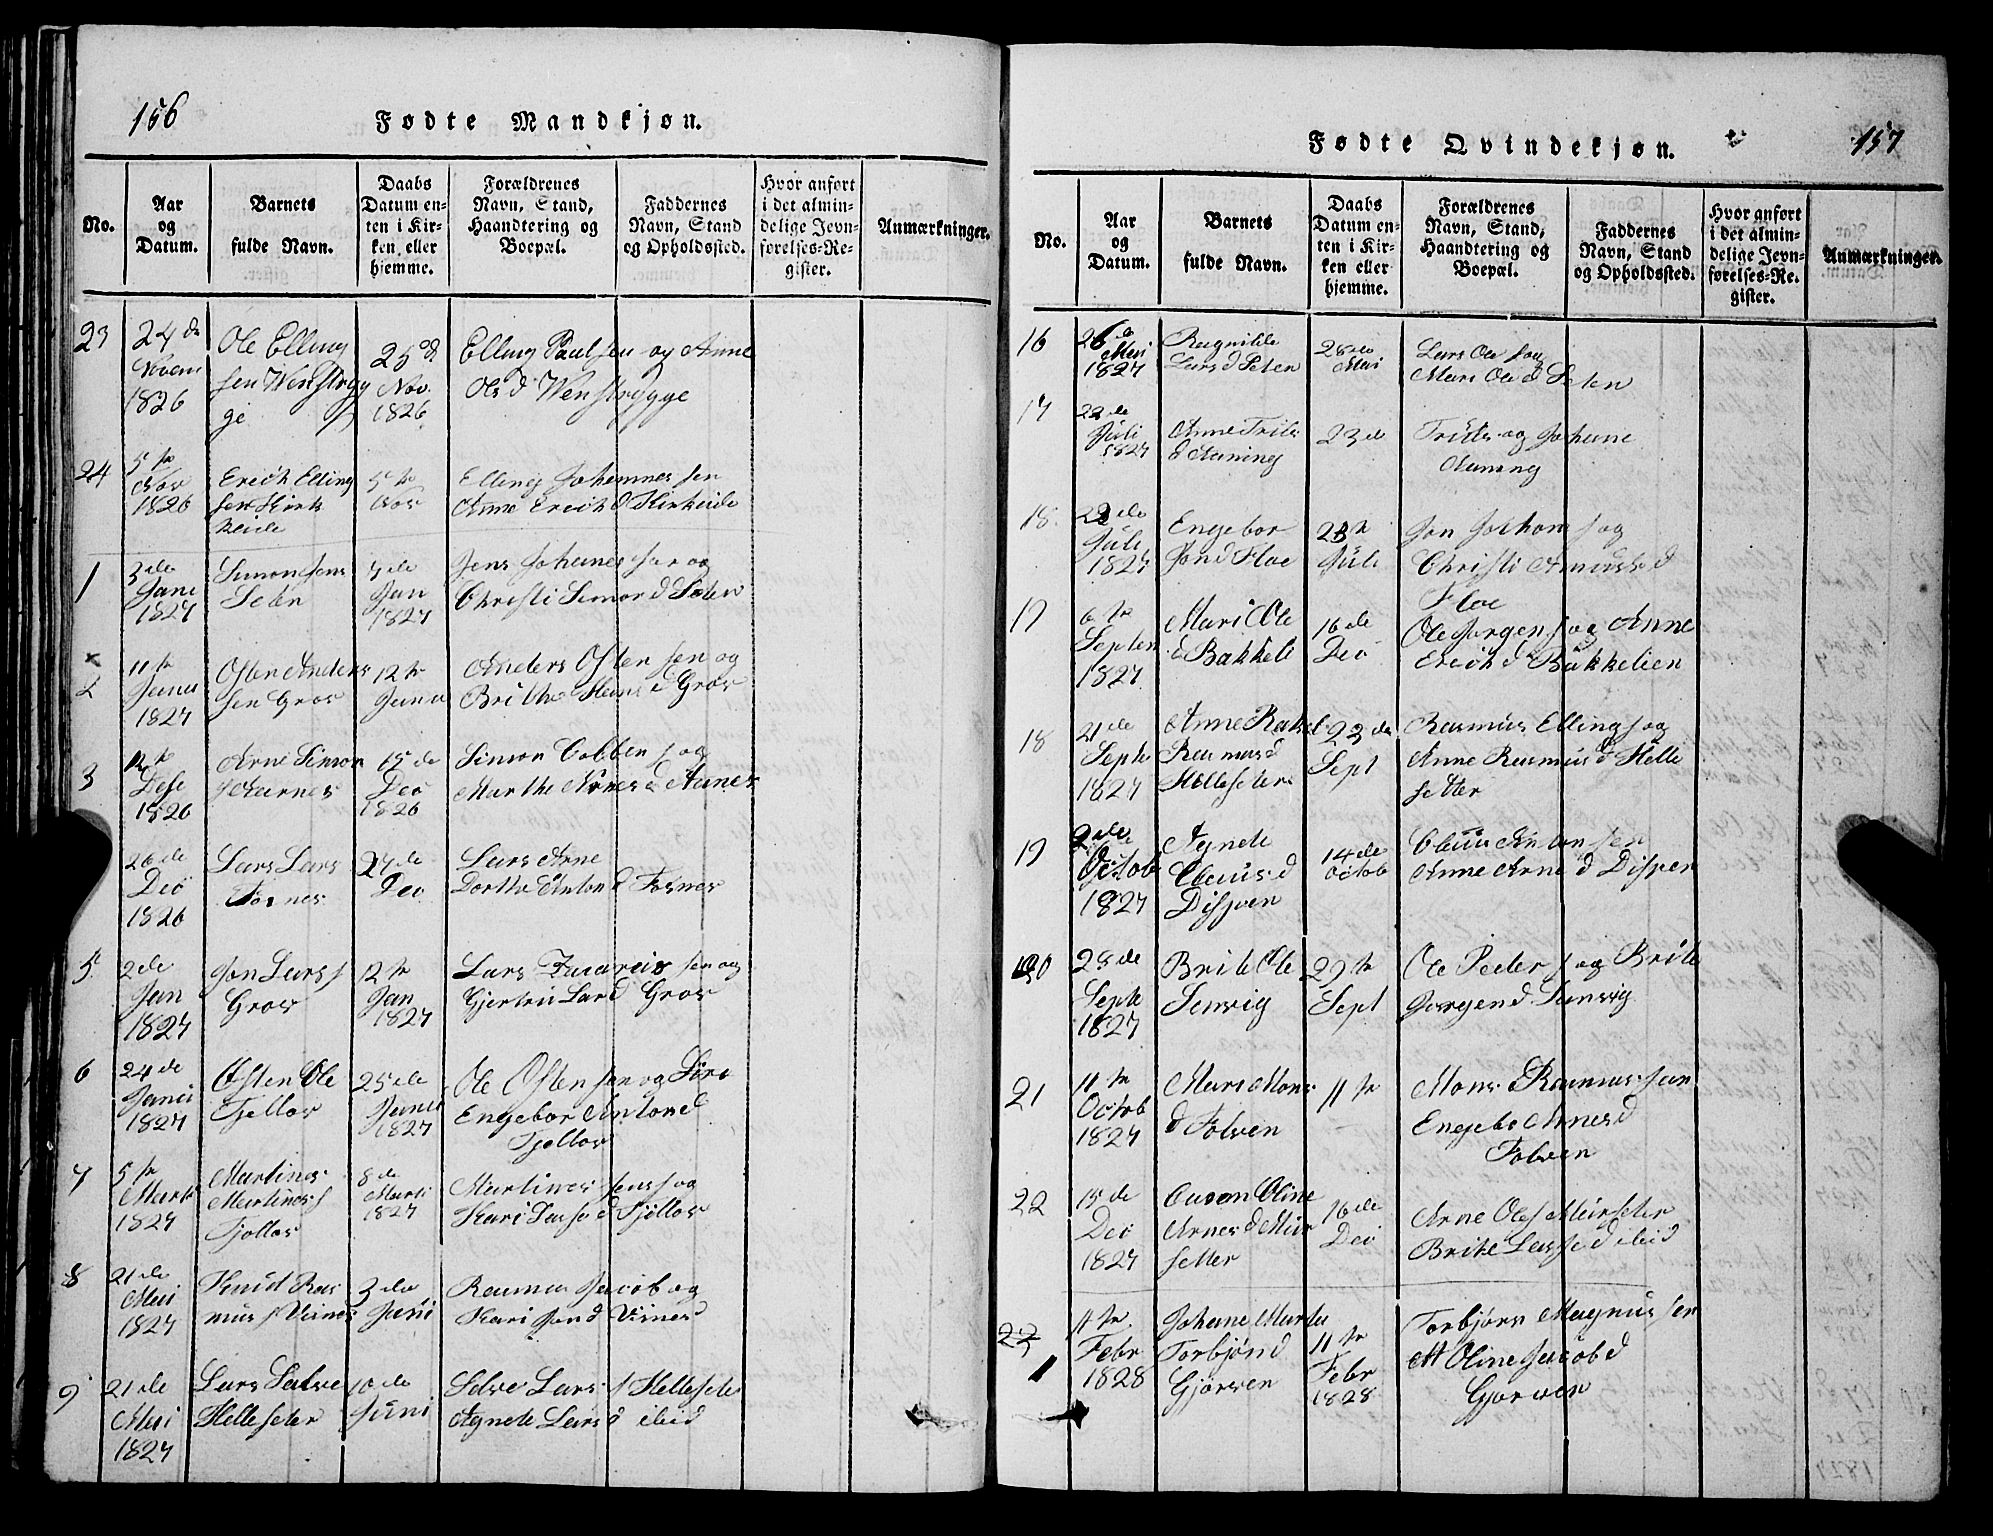 156
Fødte Mandkjøn.
No.
Aar
og
Datum.
Barnets
fulde Navn.
Daabs
Datum en-
ten i Kir-
ken eller
hjemme.
Forældrenes
Navn, Stand,
Haandtering og
Boepæl.
Faddernes
Navn, Stand
og Opholdssted.
Hvor anført
i det almin-
delige Jevn-
førelses-Re-
gister.
Anmærkninger.
23
24 de
Novem
1826
Ole Elling
sen Wenstryg
ge
25 de
Nov.
1826
Elling Paulsen og Anne
Ols d Wenstrygge
24
5 te
Nov
1826
Erich Elling
sen Kirk
heide
5 te
Nov
Elling Johannes sen
Anne Erich d Kirkeide
1
3 de
Janu
1827
Simon Jens
Seten
7 de
Jan
1827
Jens Johanes sen og
Christi Simon d Seten
2
11 te
Janu
1827
Osten Anders
sen Grov
12 te
Janu
Anders Osten sen og
Brithe Hans d Grov
3
12 te
Dese
1826
Arne Simon
s Aarnes
15 de
Dec
1826
Simon Colben s og
Marthe Arnes d Aanes
26 de
Dec
1826
Lars Lars
Fosnes
27 de
Dec
Lars Arne
Dorthe Anton d Fosnes
5
2 de
Jan
1827
Jon Lars s
Grov
12 te
Jan
1827
Lars Zacarias sen og
Gjertru Lar d Grov
6
24 de
Janu
1827
Osten Ole
Tjellos
25 de
Janu
1827
Ole Osten sen og
Engebor Anton d
Tjellos
7
5 te
Marti
1827
Martines
Martines s
Tjollos
8 de
Marti
1827
Martines Jens s og
Kari Lasse d Tjollos
8
21 de
Mai
1827
Knud Ras
mus s Visnes
3 de
Juni
Rasmus Jacob og
Kari Jon d Visnes
9
21 de
Mai
1827
Lars Salve
Helleseter
10 de
Juni
Salve Lars s Helleseter
Agnete Lars d ibid
157
Fødte Qvindekjøn.
No.
Aar
og
Datum.
Barnets
fulde Navn.
Daabs
Datum en-
ten i Kir-
ken eller
hjemme.
Forældrenes
Navn, Stand,
Haandtering og
Boepæl.
Faddernes
Navn, Stand
og Opholdssted.
Hvor anført
i det almin-
delige Jevn-
førelses-Re-
gister.
Anmærkninger.
16
26 de
Mai
1827
Ragnilde
Lars d Seten
28 de
Mai
Lars Ole s og
Mari Ole d Seten
17
22 de
Juli
1827
Anne Frits
d Aaning
23 de
Frits og Johane
Aaning
18
22 de
Juli
1827
Engebor
Jon d Floe
23 te
Juli
Jon Jothom s og
Christi Asmus d
Floe
17
6 te
Septem
1827
Mari Ole
d Bakkeli
16 de
Dec
Ole Jorgen s og Anne
Erich d Bakkelien
18
21 de
Septe
1827
Anne Rakel
Rasmus d
Helleseter
23 de
Sept
Rasmus Elling s og
Anne Rasmus d Helle
setter
19
2 de
Octob
1827
Agnete
Claus d
Disjven
14 de
Octob
Claus Anton sen
Anne Arne d Disjven
20
28 de
Septe
1827
Brite Ole
Senvig
29 te
Sept
Ole Peder s og Brite
Jorgen d Senvig
21
11 te
Octob
1827
Mari Mons
d Folven
11 te
Mons Rasmus sen
Engebo Arnes d
Folven
22
15 de
Dec
1827
Oline
Arnes d Mur
setter
16 de
Dec
Arne Oles Mürseter
Brite Lasse d ibid
23
1
11 te
Febr
1828
Johane Marta
Torbjön d
Gjörven
11 te
Febr
1828
Torbjörn Magnus sen
M Oline Jacob d
Gjorven